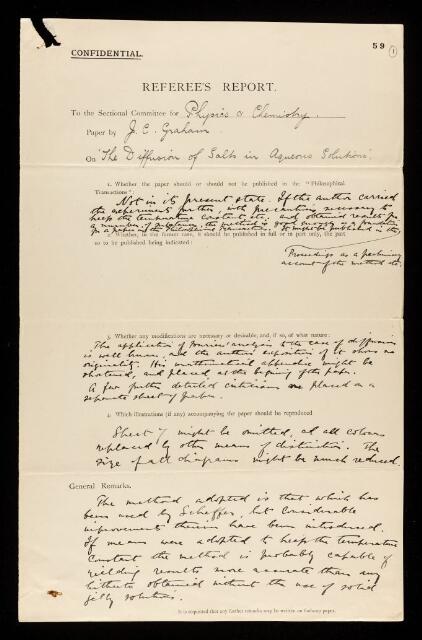 59
1
CONFIDENTIAL.
REFEREE'S REPORT.
To the Sectional Committee for Physics & Chemistry.
Paper by J. C. Graham
On "The Diffusion of Salts in Aqueous Solutions".
1. Whether the paper should or should not be published in the "Philosophical
Transactions":
Not in its present state. If the author carried
the experiments further, with precautions necessary to
keep the temperature constant, etc., and obtained results for
a number of substances, the method is good enough as a foundation
for a paper in the Philosophical Transactions. It might be published in the
Whether, in the former case, it should be published in full or in part only, the part
so to be published being indicated:
Proceedings as a preliminary
account of the method etc.
3. Whether any modifications are necessary or desirable, and, if so, of what nature:
The application of Fourier analysis to the case of diffusion
is well known, and the author's exposition of it shows no
originality. His mathematical appendix might be
shortened, and placed at the beginning of the paper.
A few further detailed criticisms are placed on a
separate sheet of paper.
4. Which illustrations (if any) accompanying the paper should be reproduced
Sheet 7 might be omitted, and all colours
replaced by other means of distinction. The
size of all diagrams might be much reduced.
General Remarks.
The method adopted is that which has
been used by Scheffer, but considerable
improvements therein have been introduced.
If means were adopted to keep the temperature
constant the method is probably capable of
yielding results more accurate than any
hitherto obtained without the use of solid
jelly solutions.
It is requested that any further remarks may be written on foolscap paper.